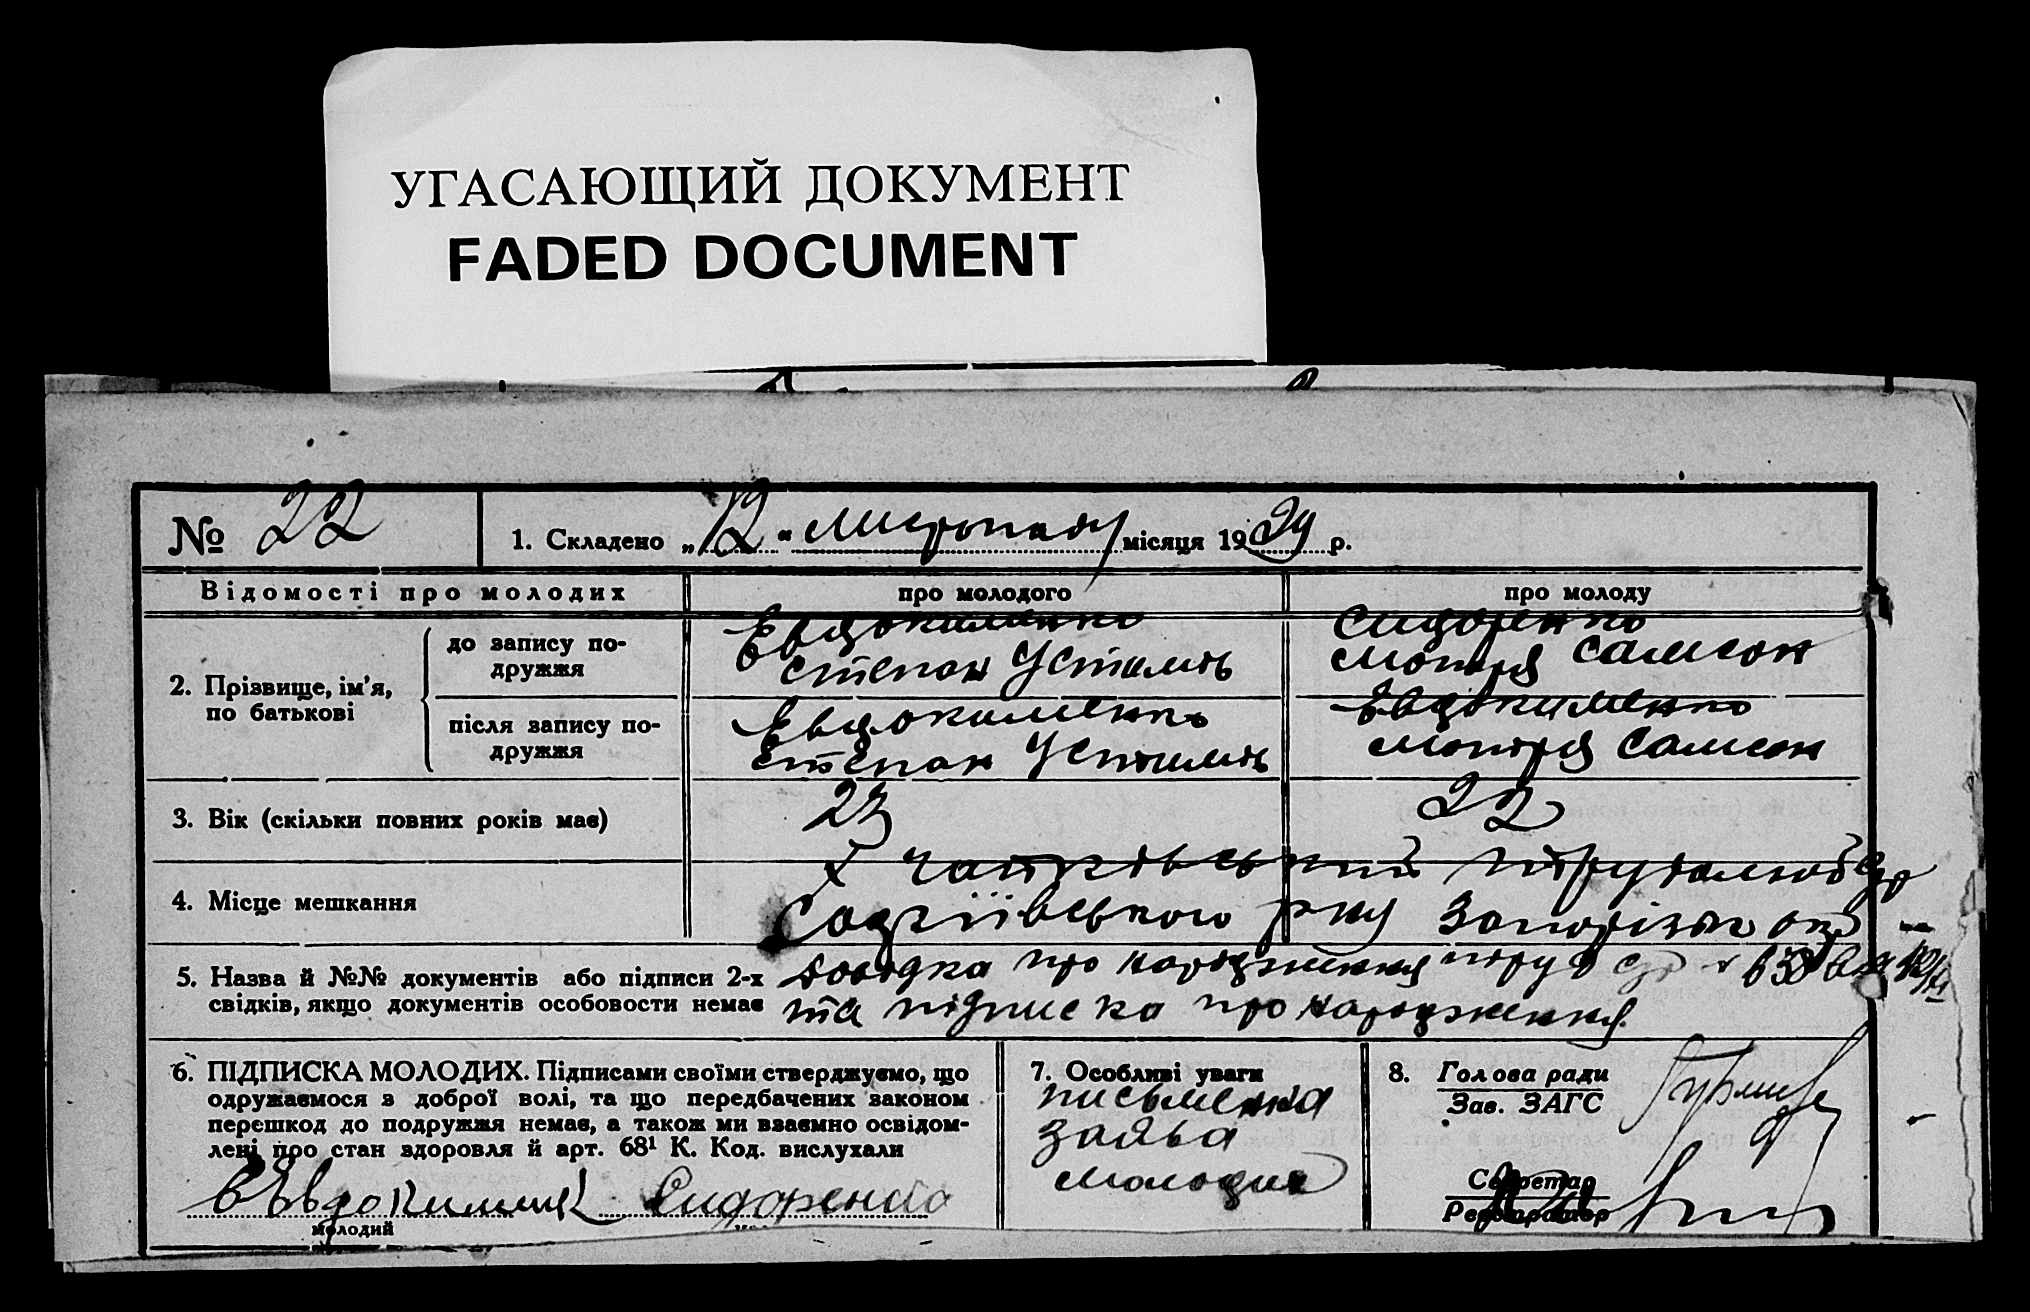 УГАСАЮЩИЙ ДОКУМЕНТ
FADED DOCUMENT
№ 22
1. Складено „12“ листопаду місяця 1924 р.
Відомості про молодих
про молодого
про молоду
2. Прізвище, ім’я, по батькові
до запису по-
дружжя
Евдокименко
Степан Устимів
Сидоренко
Мотря Самсон
після запису по-
дружжя
Евдокименко
Степан Устимів
Евдокименко
Мотря Самсон
3. Вік (скільки повних років має)
23
22
4. Місце мешкання
х
Софіївського р-ну Запоріз окр
5. Назва й №№ документів або підписи 2-х
свідків, якщо документів особовости немає
довідка про народження
та підписка про народження.
6. ПІДПИСКА МОЛОДИХ. Підписами своїми стверджуємо, що
одружаємося з доброї волі, та що передбачених законом
перешкод до подружжя немає, а також ми взаємно освідом-
лені про стан здоровля й арт. 68¹ К. Код. вислухали
Сидоренко
молодий
7. Особливі уваги
письменна
заява
молодих
8. Голова ради
Зав. ЗАГС
Секретар
Реєстратор